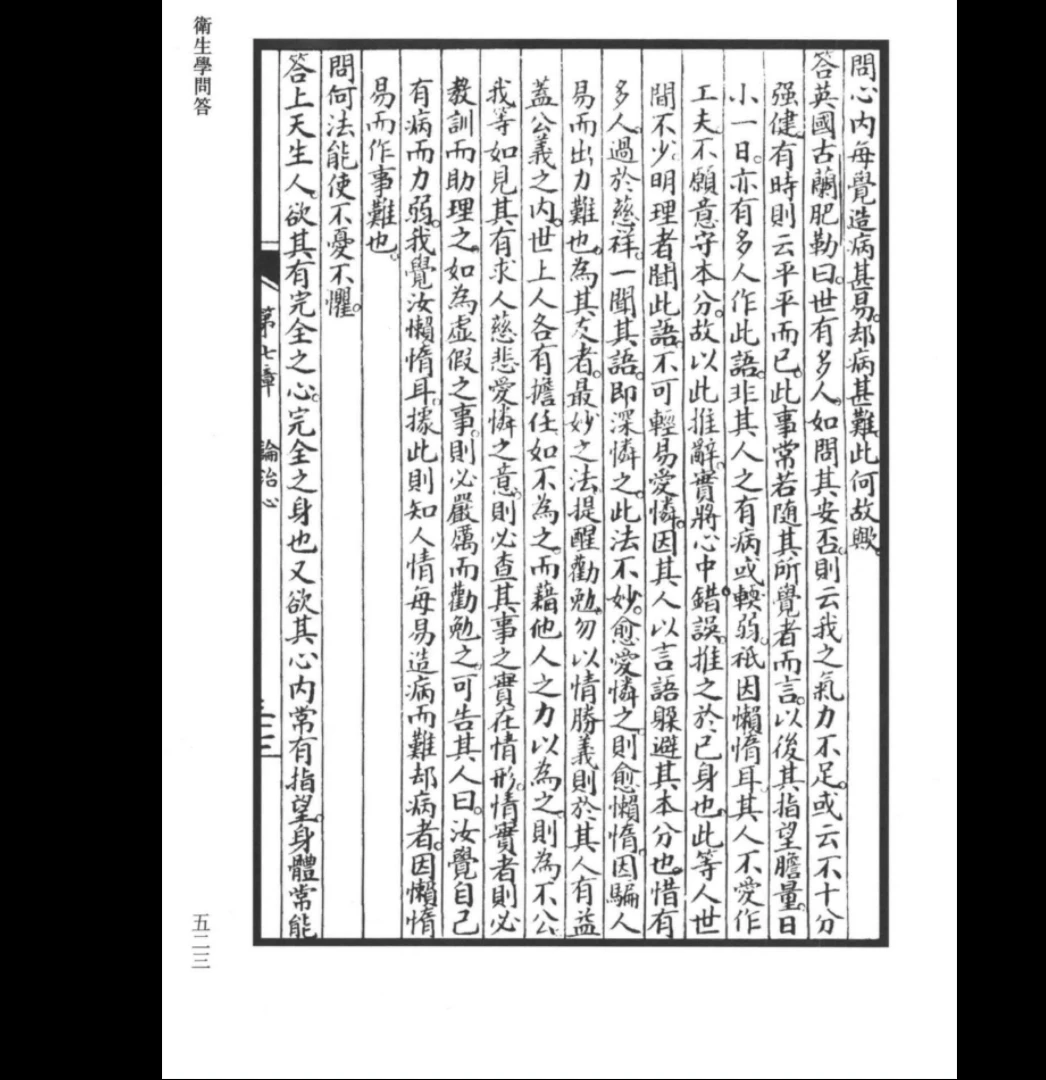 衛生學問答
問心內每覺造病甚易。却病甚難。此何故歟。
答英國古蘭肥勒曰。世有多人。如問其安否。則云我之氣力不足。或云不十分
强健。有時則云平平而已。此事常若隨其所覺者而言。以後其指望膽量。日
小一日。亦有多人作此語。非其人之有病或輭弱。祇因懶惰耳。其人不愛作
工夫。不願意守本分。故以此推辭。實將心中錯誤。推之於己身也。此等人世
間不少。明理者聞此語。不可輕易愛憐。因其人以言語躲避其本分也。惜有
多人。過於慈祥。一聞其語。即深憐之。此法不妙。愈愛憐之。則愈懶惰。因騙人
易而出力難也。為其友者。最妙之法。提醒勸勉。勿以情勝義則於其人有益
蓋公義之內。世上人各有擔任。如不為之。而藉他人之力以為之。則為不公
我等如見其有求人慈悲愛憐之意。則必查其事之實在情形。情實者則必
教訓而助理之。如為虛假之事。則必嚴厲而勸勉之。可告其人曰。汝覺自己
有病而力弱。我覺汝懶惰耳。據此則知人情每易造病而難却病者。因懶惰
易而作事難也。
問何法能使不憂不懼。
答上天生人。欲其有完全之心。完全之身也又欲其心內常有指望。身體常能
第七章 論治心
五二三